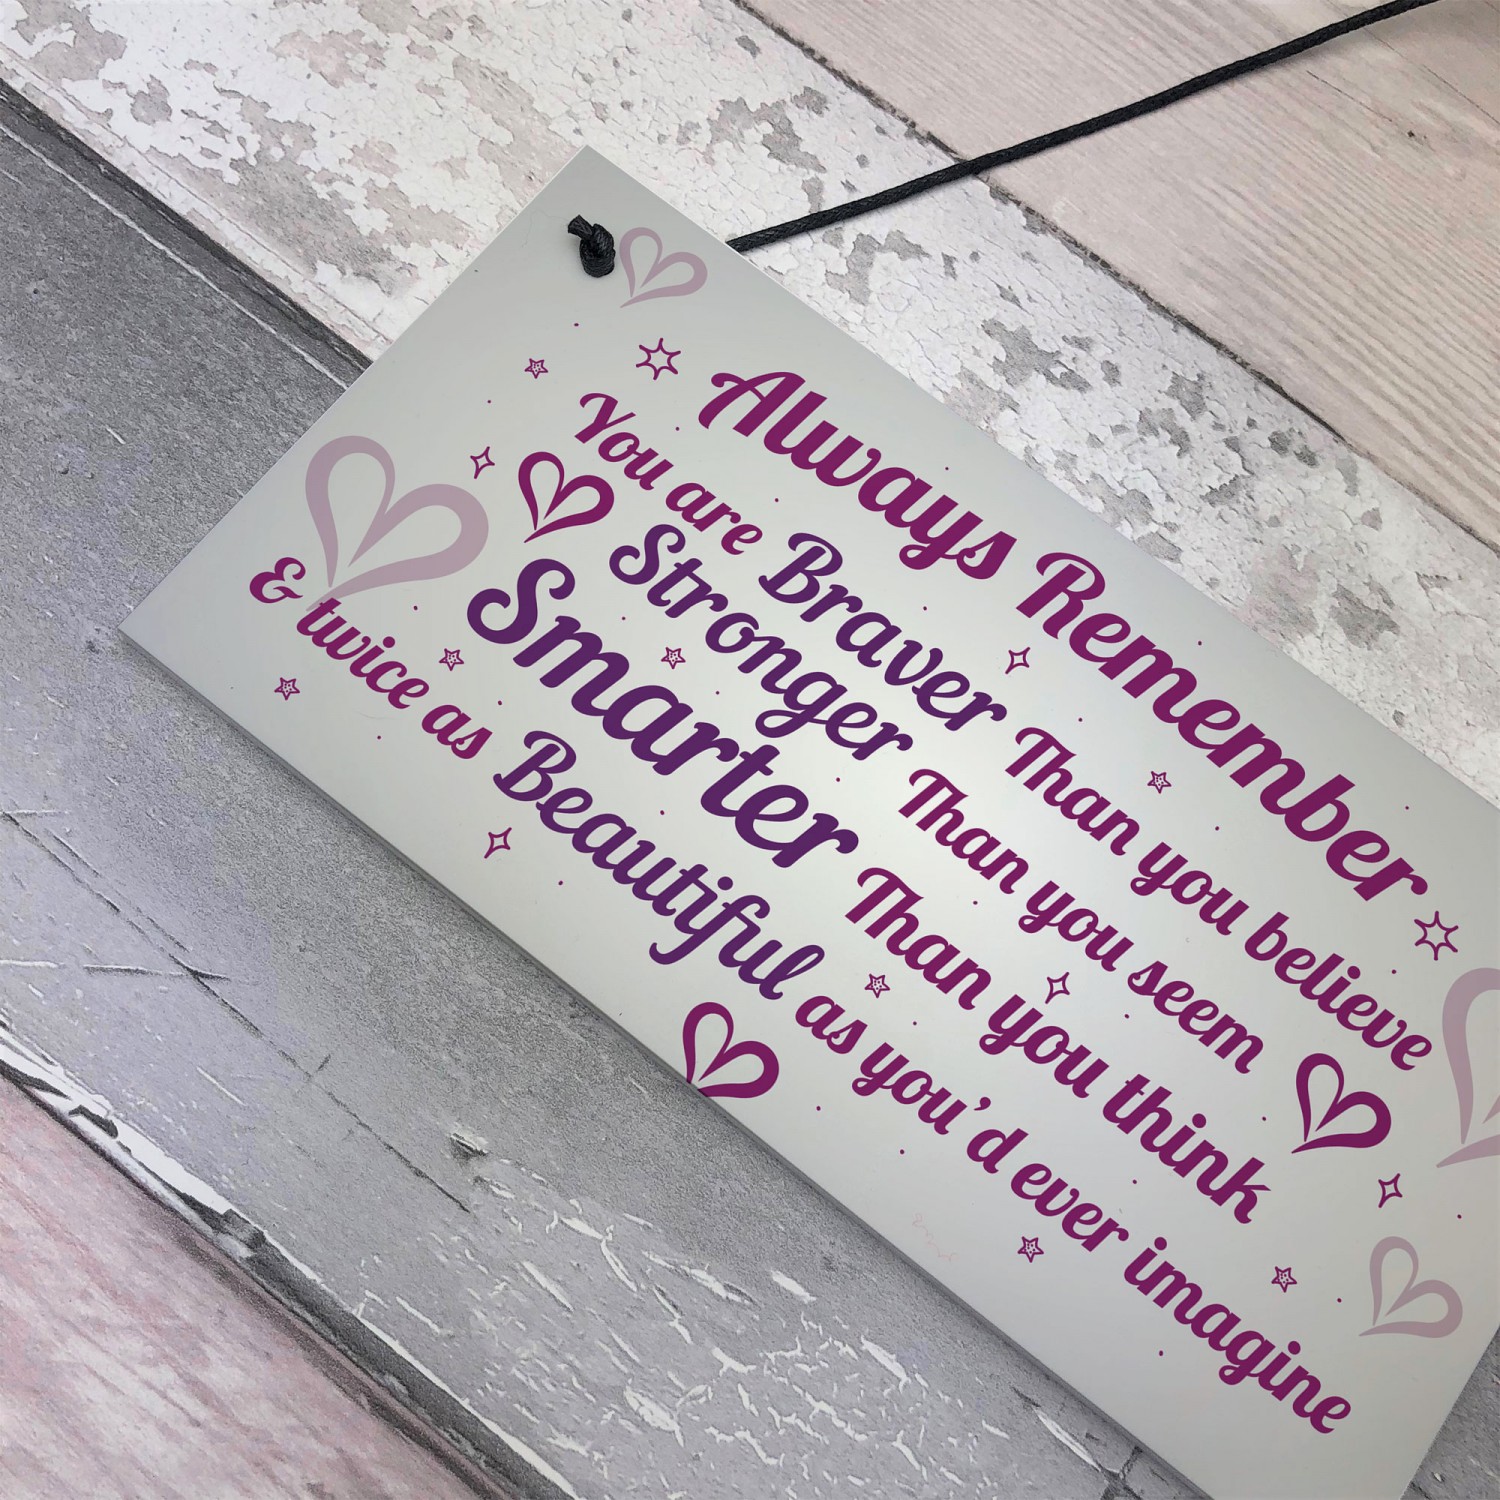 Always Remember
You are Braver Than you believe
Stronger Than you seem
Smarter Than you think
& twice as Beautiful as you'd ever imagine